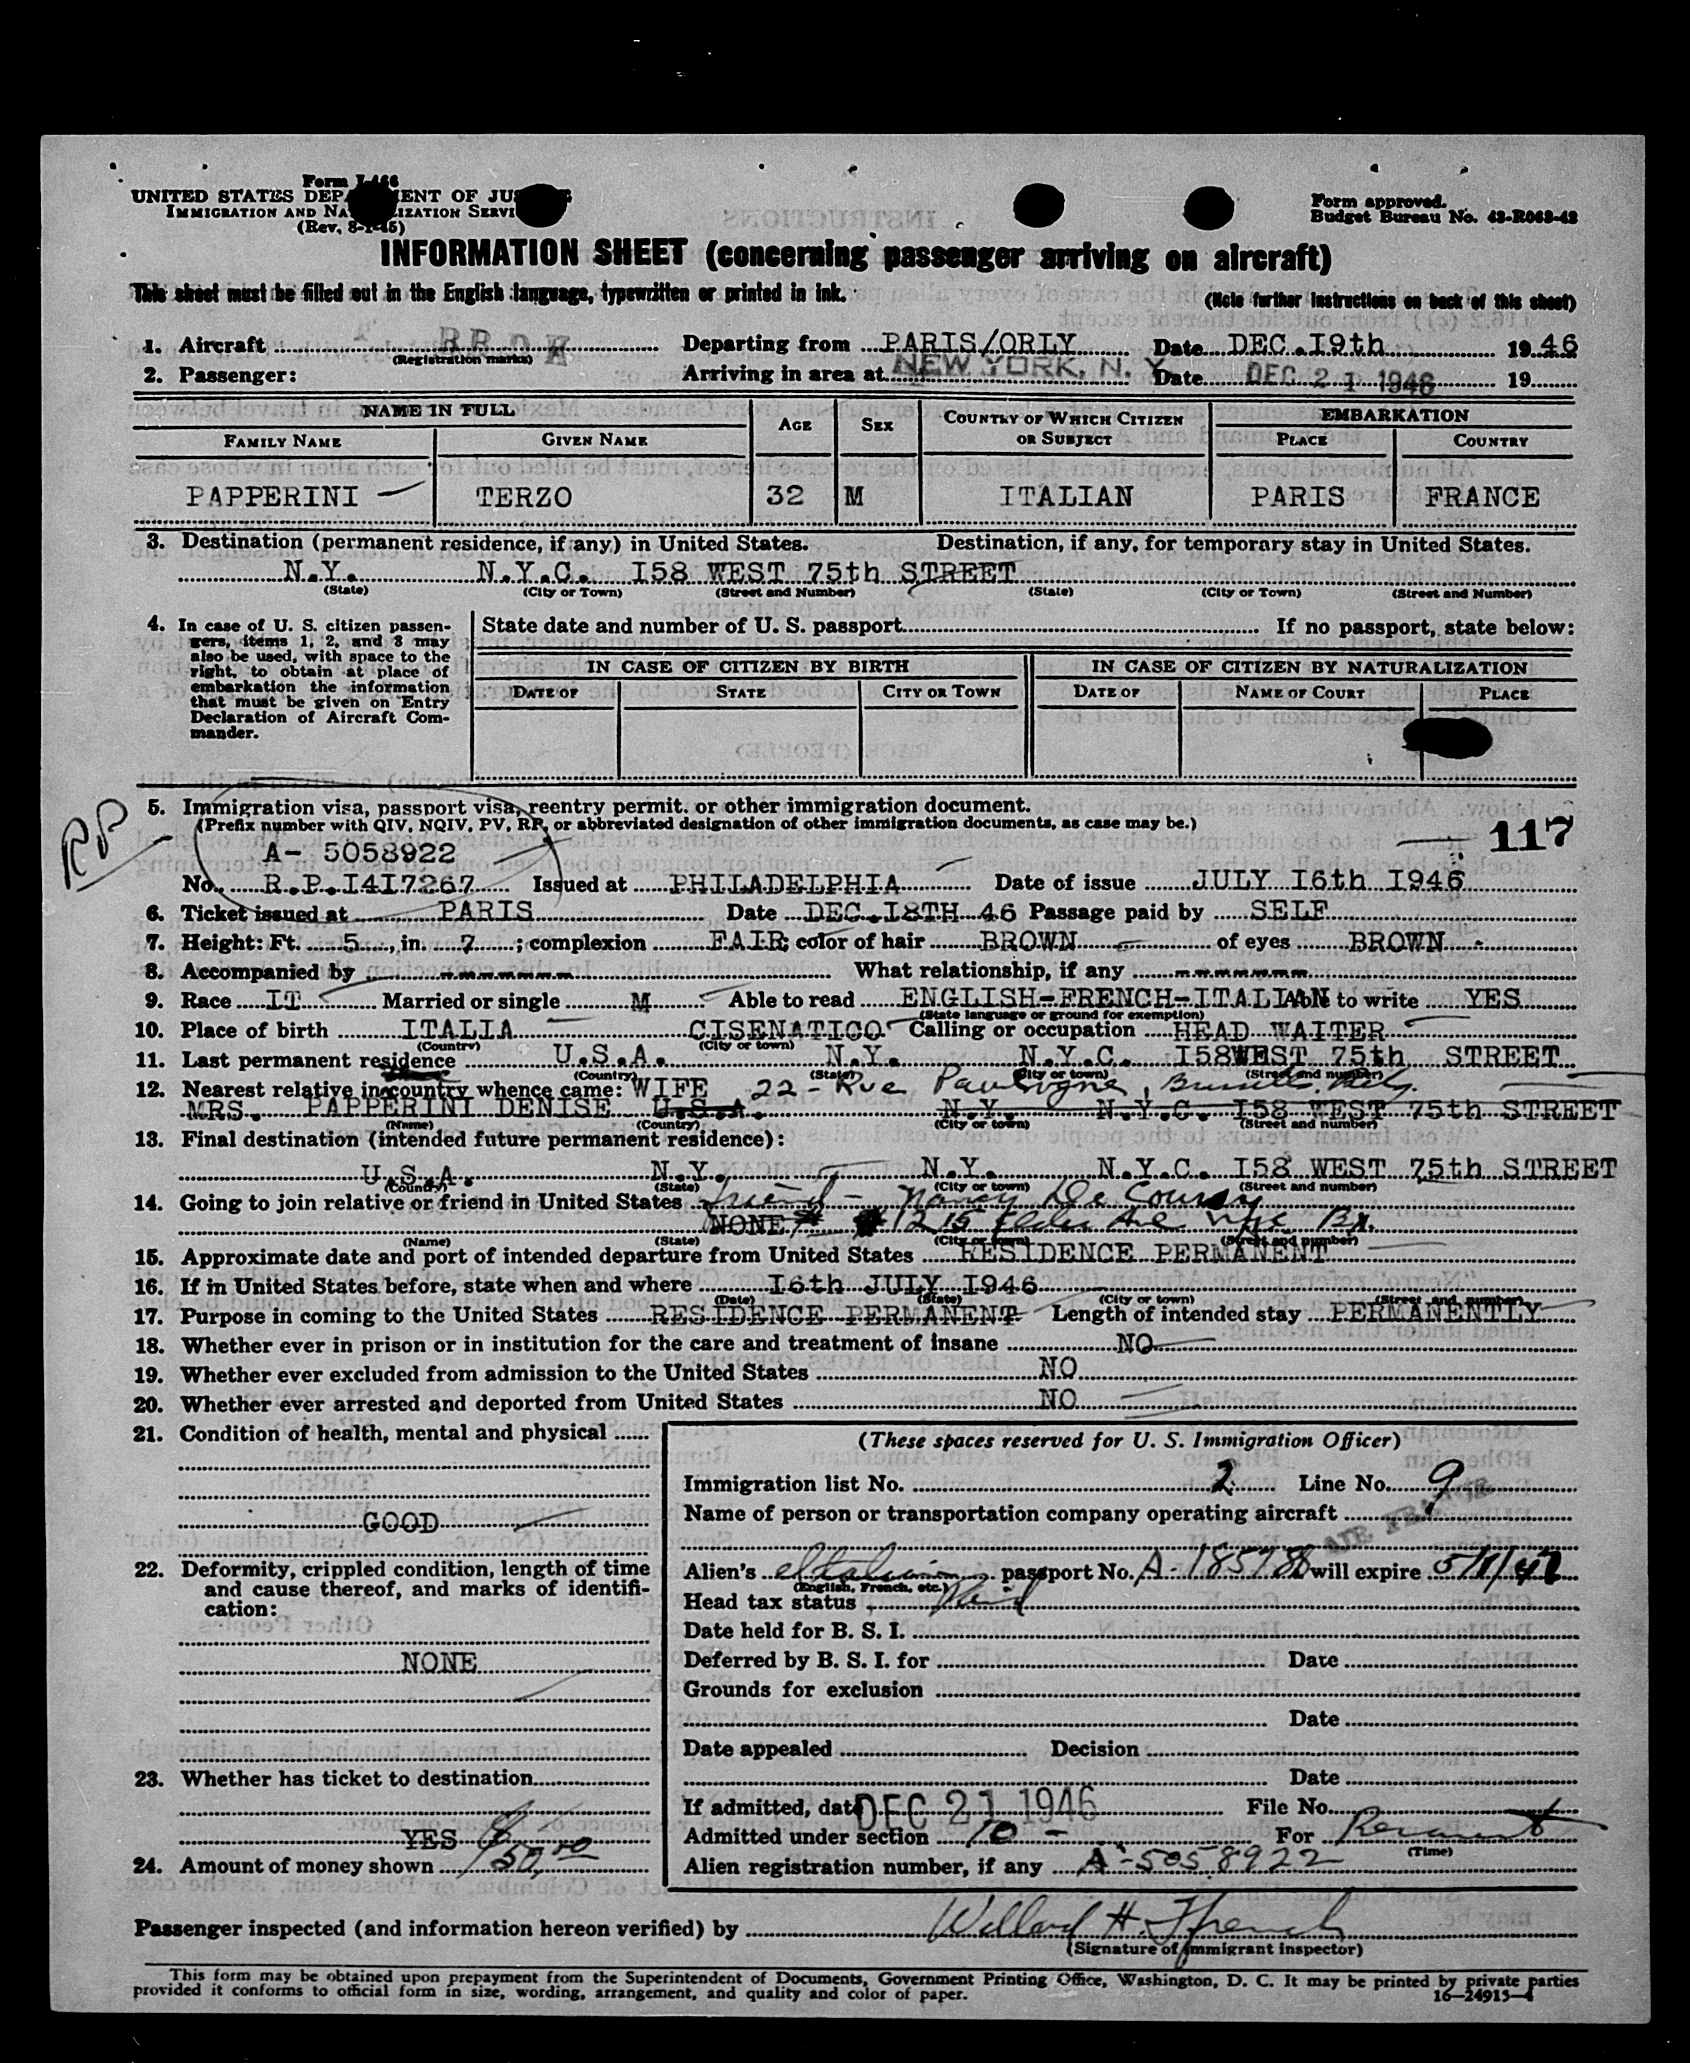 Form I-466
UNITED STATES DEPARTMENT OF JUSTICE
IMMIGRATION AND NATURALIZATION SERVICE
(Rev. 8-1-45)
Form approved.
Budget Bureau No. 43-R063-42
INFORMATION SHEET (concerning passenger arriving on aircraft)
This sheet must be filled out in the English language, typewritten or printed in ink.
(Note further instructions on back of this sheet)
1. Aircraft Departing from PARIS/ORLY Date DEC.I9th 1946
(Registration marks)
2. Passenger: Arriving in area at NEW YORK, N. Y. Date DEC 21 1946 19
NAME IN FULL AGE SEX COUNTRY OF WHICH CITIZEN OR SUBJECT EMBARKATION
FAMILY NAME GIVEN NAME PLACE COUNTRY
PAPPERINI TERZO 32 M ITALIAN PARIS FRANCE
3. Destination (permanent residence, if any) in United States. Destination, if any, for temporary stay in United States.
N.Y. N.Y.C. I58 WEST 75th STREET
(State) (City or Town) (Street and Number) (State) (City or Town) (Street and Number)
4. In case of U. S. citizen passen-
gers, items 1, 2, and 3 may
also be used, with space to the
right, to obtain at place of
embarkation the information
that must be given on Entry
Declaration of Aircraft Com-
mander.
State date and number of U. S. passport If no passport, state below:
IN CASE OF CITIZEN BY BIRTH IN CASE OF CITIZEN BY NATURALIZATION
DATE OF STATE CITY OR TOWN DATE OF NAME OF COURT PLACE
RP
5. Immigration visa, passport visa, reentry permit, or other immigration document.
(Prefix number with QIV, NQIV, PV, RP, or abbreviated designation of other immigration documents, as case may be.)
117
A- 5058922
No. R.P.I4I7267 Issued at PHILADELPHIA Date of issue JULY I6th I946
6. Ticket issued at PARIS Date DEC.I8TH 46 Passage paid by SELF
7. Height: Ft. 5, in. 7; complexion FAIR; color of hair BROWN of eyes BROWN
8. Accompanied by ------- What relationship, if any -------
9. Race IT Married or single M Able to read ENGLISH-FRENCH-ITALIAN Able to write YES
(State language or ground for exemption)
10. Place of birth ITALIA CISENATICO Calling or occupation HEAD WAITER
(Country) (City or town)
11. Last permanent residence U.S.A. N.Y. N.Y.C. I58WEST 75th STREET
(Country) (State) (City or town) (Street and number)
12. Nearest relative in country whence came: WIFE 22 - Rue
MRS. PAPPERINI DENISE U.S.A. N.Y. N.Y.C. I58 WEST 75th STREET
(Name) (Country) (City or town) (Street and number)
13. Final destination (intended future permanent residence):
U.S.A. N.Y. N.Y. N.Y.C. I58 WEST 75th STREET
(Country) (State) (City or town) (Street and number)
14. Going to join relative or friend in United States friend - Nancy De Coursy
NONE 1215 Elder Ave NYC Bx.
(Name) (State) (City or town) (Street and number)
15. Approximate date and port of intended departure from United States RESIDENCE PERMANENT
16. If in United States before, state when and where I6th JULY I946
(Date) (State) (City or town) (Street and number)
17. Purpose in coming to the United States RESIDENCE PERMANENT Length of intended stay PERMANENTLY
18. Whether ever in prison or in institution for the care and treatment of insane NO
19. Whether ever excluded from admission to the United States NO
20. Whether ever arrested and deported from United States NO
21. Condition of health, mental and physical
GOOD
22. Deformity, crippled condition, length of time
and cause thereof, and marks of identifi-
cation:
NONE
23. Whether has ticket to destination
YES
24. Amount of money shown 150.00
(These spaces reserved for U. S. Immigration Officer)
Immigration list No. 2 Line No. 9
Name of person or transportation company operating aircraft
AIR FRANCE
Alien's Italian passport No. A-185786 will expire 5/1/47
(English, French, etc.)
Head tax status Paid
Date held for B. S. I.
Deferred by B. S. I. for Date
Grounds for exclusion
Date
Date appealed Decision
Date
If admitted, date DEC 21 1946 File No.
Admitted under section 10 - For Permanent
(Time)
Alien registration number, if any A-5058922
Passenger inspected (and information hereon verified) by Willard H. French
(Signature of immigrant inspector)
This form may be obtained upon prepayment from the Superintendent of Documents, Government Printing Office, Washington, D. C. It may be printed by private parties
provided it conforms to official form in size, wording, arrangement, and quality and color of paper.
16—24915-4